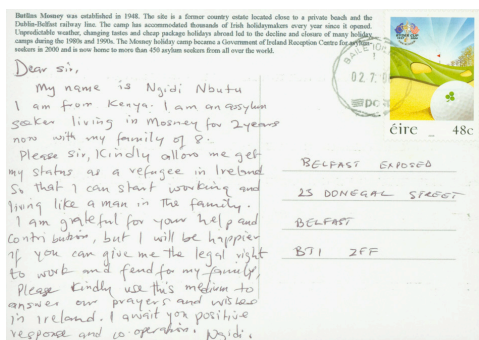 Butlins Mosney was established in 1948. The site is a former country estate located close to a private beach and the
Dublin-Belfast railway line. The camp has accommodated thousands of Irish holidaymakers every year since it opened.
Unpredictable weather, changing tastes and cheap package holidays abroad led to the decline and closure of many holiday
camps during the 1980s and 1990s. The Mosney holiday camp became a Government of Ireland Reception Centre for asylum-
seekers in 2000 and is now home to more than 450 asylum seekers from all over the world.
Dear sir,
My name is Ngidi Nbutu
I am from Kenya. I am an asylum
seeker living in Mosney for 2 years
now with my family of 8.
Please sir, Kindly allow me get
my status as a refugee in Ireland
So that I can start working and
living like a man in the family.
I am grateful for your help and
contribution, but I will be happier
if you can give me the legal right
to work and fend for my family.
Please kindly use this medium to
answer our prayers and wishes
in Ireland. I await you positive
response and co-operation. Ngidi.
02.7.
éire 48c
BELFAST EXPOSED
23 DONEGAL STREET
BELFAST
BT1 2FF